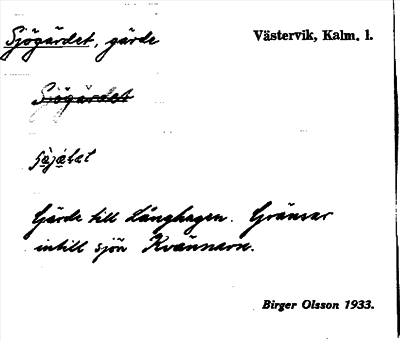 Sjögärdet, gärde
Västervik, Kalm. l.
Sjögärdet
Gärde till Långhagen. Gränsar
intill sjön Kvännaren.
Birger Olsson 1933.